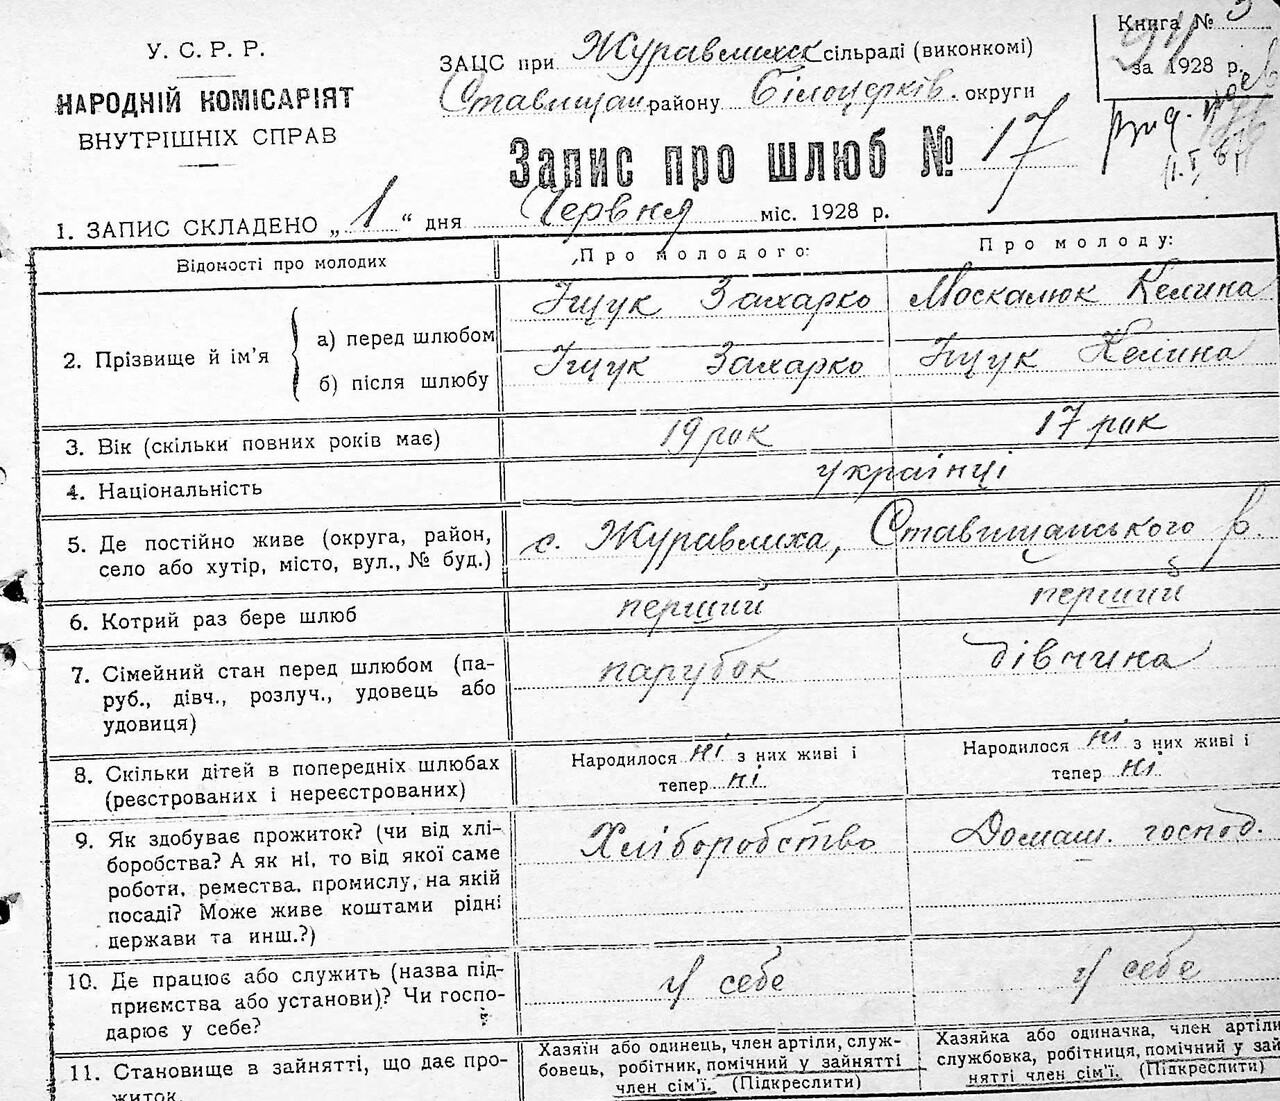 У. С. Р. Р.
НАРОДНІЙ КОМІСАРІЯТ
ВНУТРІШНІХ СПРАВ
ЗАЦС при Журавлиськ сільраді (виконкомі)
Ставищан району Білоцерків. округи
Книга № 3
за 1928 р.
Запис про шлюб № 17
1. ЗАПИС СКЛАДЕНО „ 1 “ дня Червня міс. 1928 р.
Відомості про молодих
Про молодого:
Про молоду:
2. Прізвище й ім'я
а) перед шлюбом
Іщук Захарко
Москалюк Келина
б) після шлюбу
Іщук Захарко
Іщук Келина
3. Вік (скільки повних років має)
19 рок
17 рок
4. Національність
українці
5. Де постійно живе (округа, район,
село або хутір, місто, вул., № буд.)
с. Журавлиха, Ставищанського р.
6. Котрий раз бере шлюб
перший
перший
7. Сімейний стан перед шлюбом (па-
руб., дівч., розлуч., удовець або
удовиця)
парубок
дівчина
8. Скільки дітей в попередніх шлюбах
(реєстрованих і нереєстрованих)
Народилося ні з них живі і
тепер ні
Народилося ні з них живі і
тепер ні
9. Як здобуває прожиток? (чи від хлі-
боробства? А як ні, то від якої саме
роботи, ремества, промислу, на якій
посаді? Може живе коштами рідні
держави та инш.?)
Хліборобство
Домаш. господ.
10. Де працює або служить (назва під-
приємства або установи)? Чи госпо-
дарює у себе?
у себе
у себе
11. Становище в зайнятті, що дає про-
житок.
Хазяїн або одинець, член артіли, служ-
бовець, робітник, помічний у зайнятті
член сім'ї. (Підкреслити)
Хазяйка або одиначка, член артіли
службовка, робітниця, помічний у зай
нятті член сім'ї. (Підкреслити)